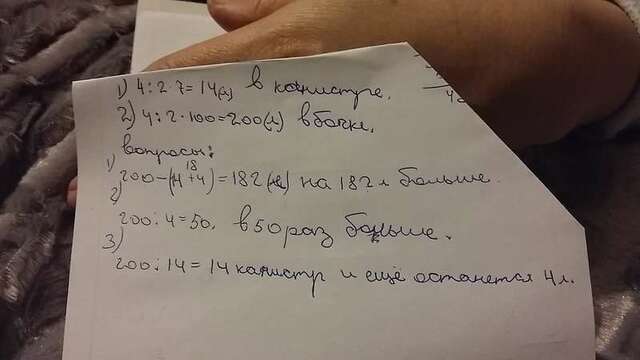 1) 4:2·7=14(л) в канистре.
2) 4:2·100=200(л) в бочке.
вопросы:
1) 200-(14+4)=182(л) на 182 л больше.
18
2) 200:4=50. в 50 раз больше.
3) 200:14=14 канистр и ещё останется 4 л.